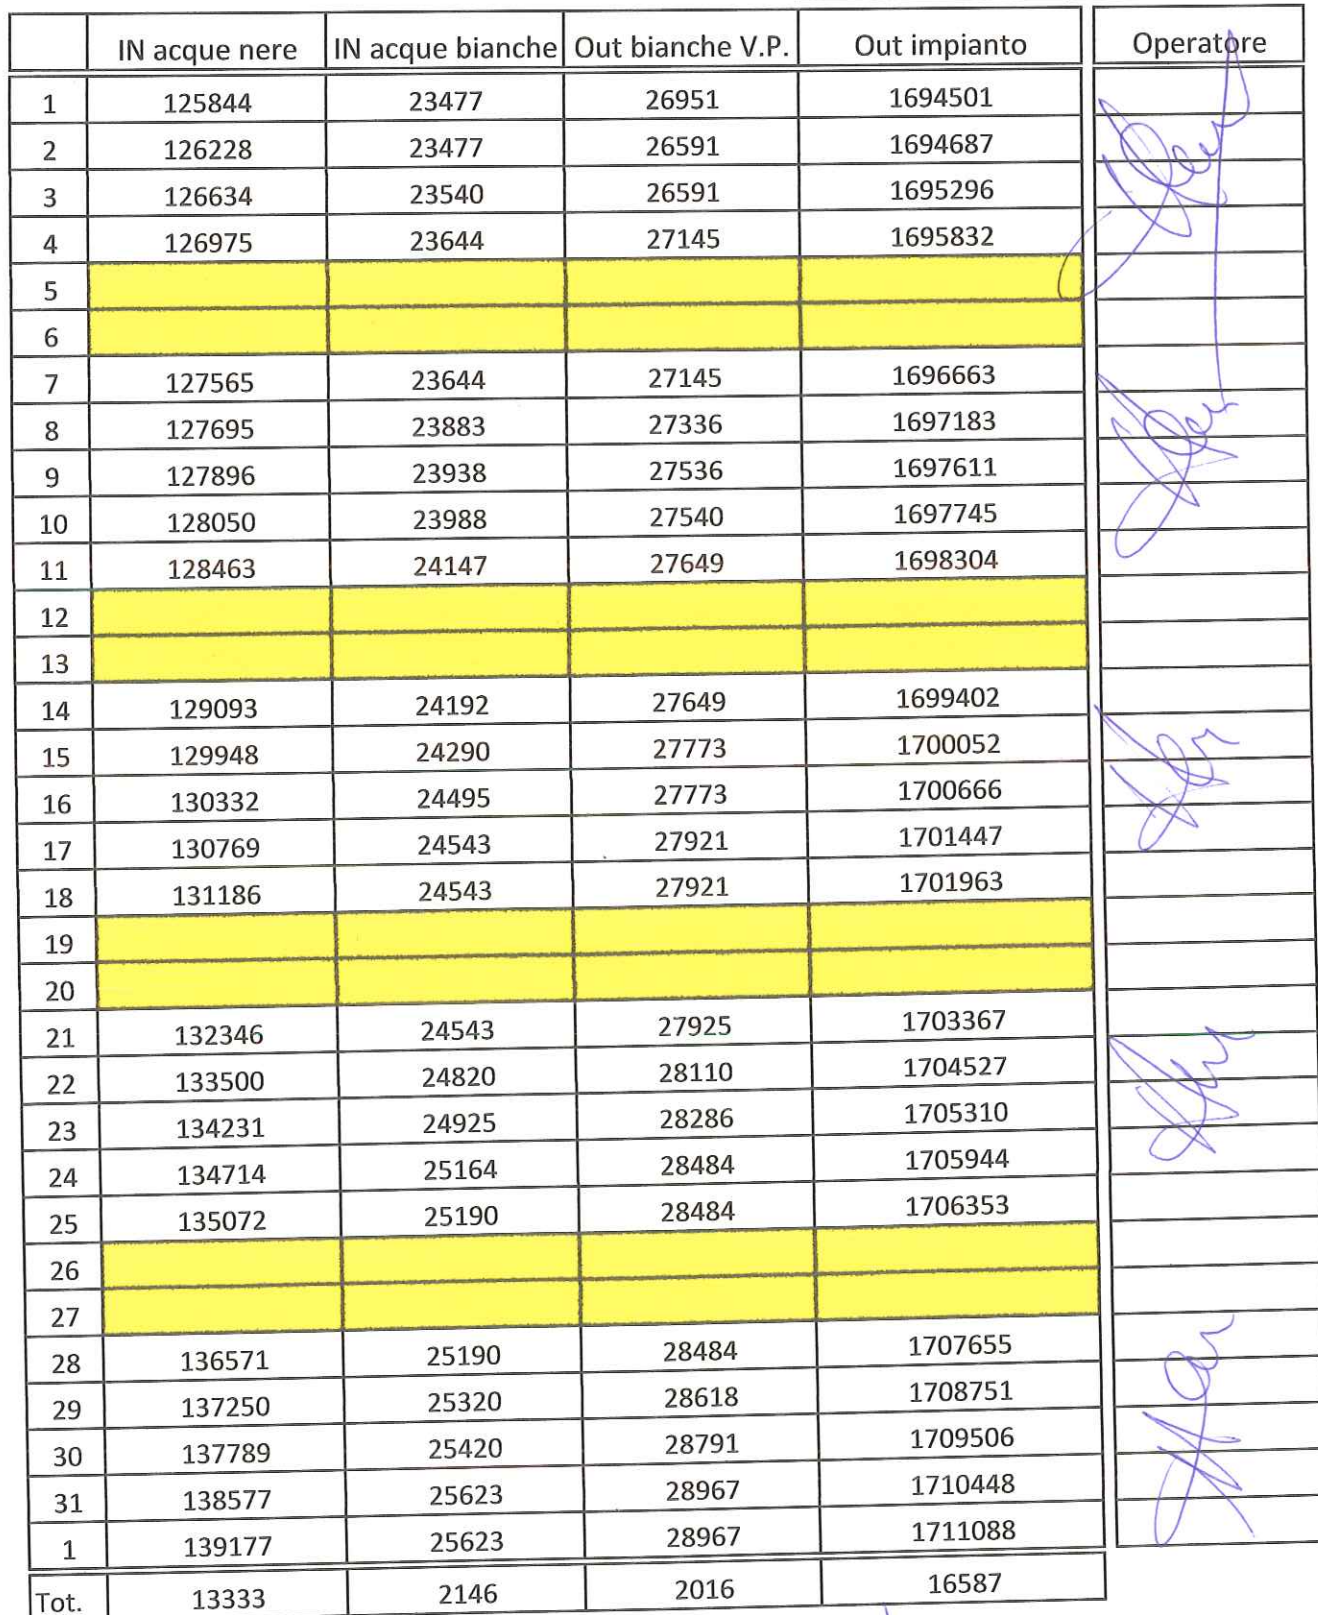 IN acque nere IN acque bianche Out bianche V.P. Out impianto Operatore
1 125844 23477 26951 1694501
2 126228 23477 26591 1694687
3 126634 23540 26591 1695296
4 126975 23644 27145 1695832
5
6
7 127565 23644 27145 1696663
8 127695 23883 27336 1697183
9 127896 23938 27536 1697611
10 128050 23988 27540 1697745
11 128463 24147 27649 1698304
12
13
14 129093 24192 27649 1699402
15 129948 24290 27773 1700052
16 130332 24495 27773 1700666
17 130769 24543 27921 1701447
18 131186 24543 27921 1701963
19
20
21 132346 24543 27925 1703367
22 133500 24820 28110 1704527
23 134231 24925 28286 1705310
24 134714 25164 28484 1705944
25 135072 25190 28484 1706353
26
27
28 136571 25190 28484 1707655
29 137250 25320 28618 1708751
30 137789 25420 28791 1709506
31 138577 25623 28967 1710448
1 139177 25623 28967 1711088
Tot. 13333 2146 2016 16587